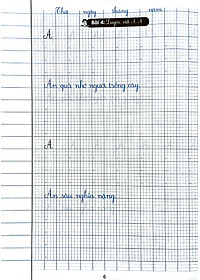 Thứ ngày tháng năm
Bài 4: Luyện viết A, Ă
A
Ăn quả nhớ người trồng cây.
Ă
Ân sâu nghĩa nặng.